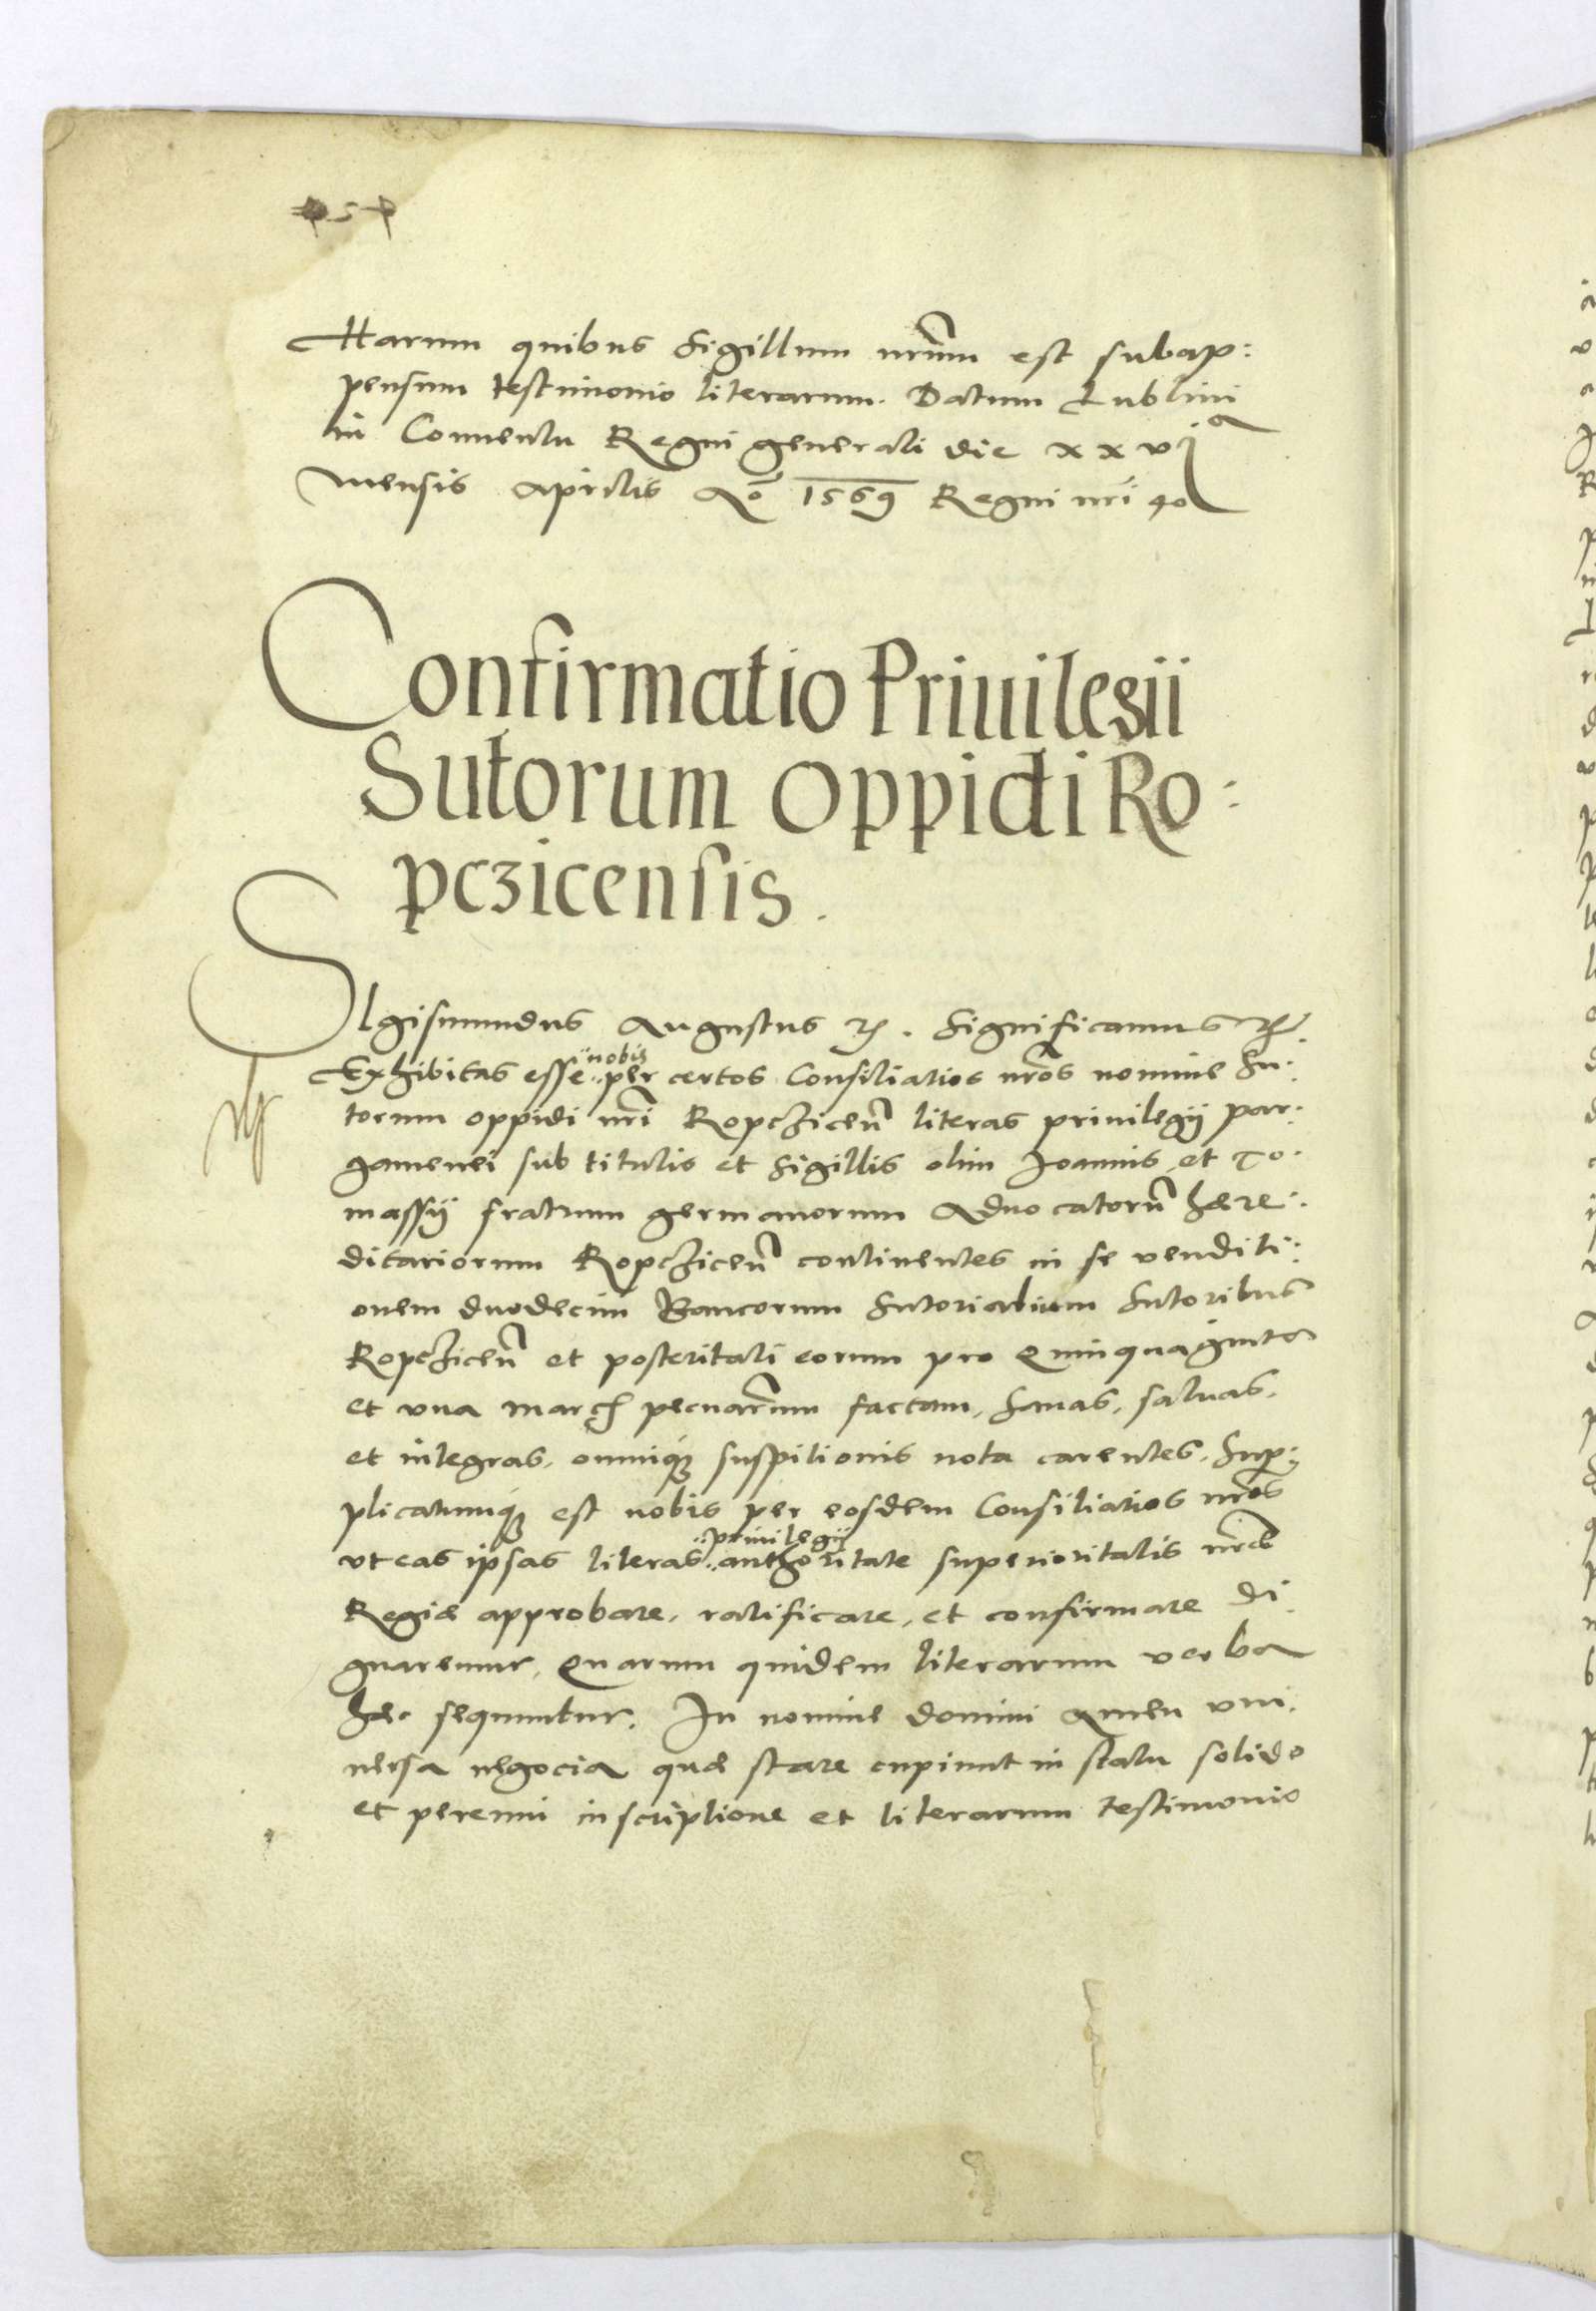 Harum quibus Sigillum nrūm est subap:
pensum testimonio literarum. Datum Lublini
in Conuentu Regni generali die xxvj a
mensis Aprilis Aō 1569 Regni nrī 40
Confirmatio Priuilegii
Sutorum Oppidi Ro:
pczicensis.
SIgismundus Augustus etc. Significamus etc.
Exhibitas esse nobis per certos Consiliarios nrōs nomine Su:
torum oppidi nrī Ropczicen̄ literas priuilegij par:
gamenei sub titulis et sigillis olim Joannis et To:
massij fratrum germanorum Aduocatorū hære:
ditariorum Ropczicen̄ continentes in se venditi:
onem duodecim Bancorum Sutorialium Sutoribus
Ropczicen̄ et posteritati eorum pro Quinquaginta
et vna march pecuarūm factam, sanas, saluas,
et integras, omniq₃ suspitionis nota carentes. Sup:
plicatumq₃ est nobis per eosdem Consiliarios nrōs
vt eas ipsas literas priuilegij authoritate superioritatis nrāe
Regiæ approbare, ratificare, et confirmare di:
gnaremur, Quarum quidem literarum verba
hæc sequuntur. In nomine domini Amen vni:
uersa negocia quæ stare cupiunt in statu solido
et peremni inscriptione et literarum testimonio